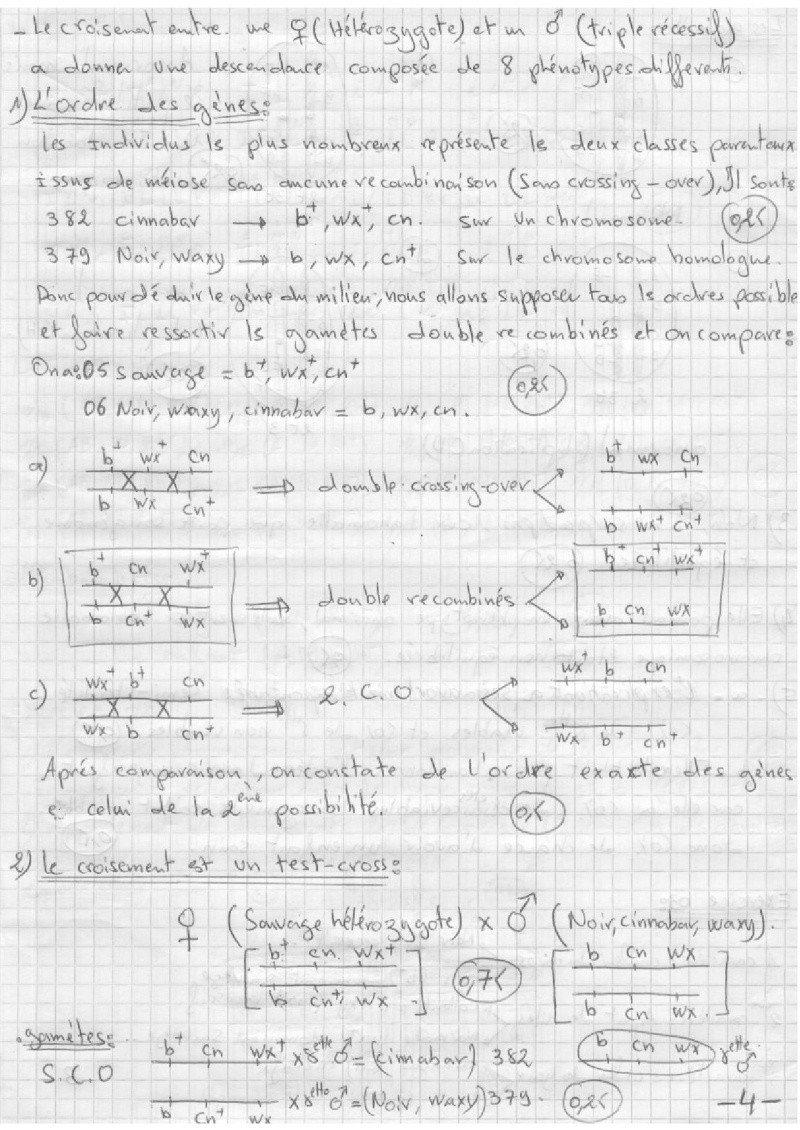 - Le croisement entre une ♀ (Hétérozygote) et un ♂ (triple récessif)
a donner une descendance composée de 8 phénotypes différents.
1) L'ordre des gènes:
Les individus ls plus nombreux représente ls deux classes parentaux
issus de méiose sans aucune recombinaison (Sans crossing-over), Il sont:
382 cinnabar → b⁺, wx⁺, cn. sur un chromosome. 0,25
379 Noir, waxy → b, wx, cn⁺ sur le chromosome homologue.
Donc pour déduir le gène du milieu, nous allons supposer tous ls ordres possible
et faire ressortir ls gamètes double recombinés et on compare:
On a: 05 sauvage = b⁺, wx⁺, cn⁺ 0,25
06 Noir, waxy, cinnabar = b, wx, cn.
b⁺ wx⁺ cn b⁺ wx cn
a) X X ⇒ double crossing-over
b wx cn⁺ b wx⁺ cn⁺
b⁺ cn wx⁺ b⁺ cn⁺ wx⁺
b) X X ⇒ double recombinés
b cn⁺ wx b cn wx
wx⁺ b⁺ cn wx⁺ b cn
c) X X ⇒ 2. C. O
wx b cn⁺ wx b⁺ cn⁺
Aprés comparaison, on constate de l'ordre exaxte des gènes
e celui de la 2ème possibilité. 0,5
2) le croisement est un test-cross:
♀ (Sauvage hétérozygote) x ♂ (Noir, cinnabar, waxy).
b⁺ cn wx⁺ b cn wx
0,75
b cn⁺ wx b cn wx
gamètes: b⁺ cn wx⁺ x γette ♂ = (cinnabar) 382 b cn wx γette ♂
S.C.O
b cn⁺ wx x γette ♂ = (Noir, waxy) 379. 0,25 -4-